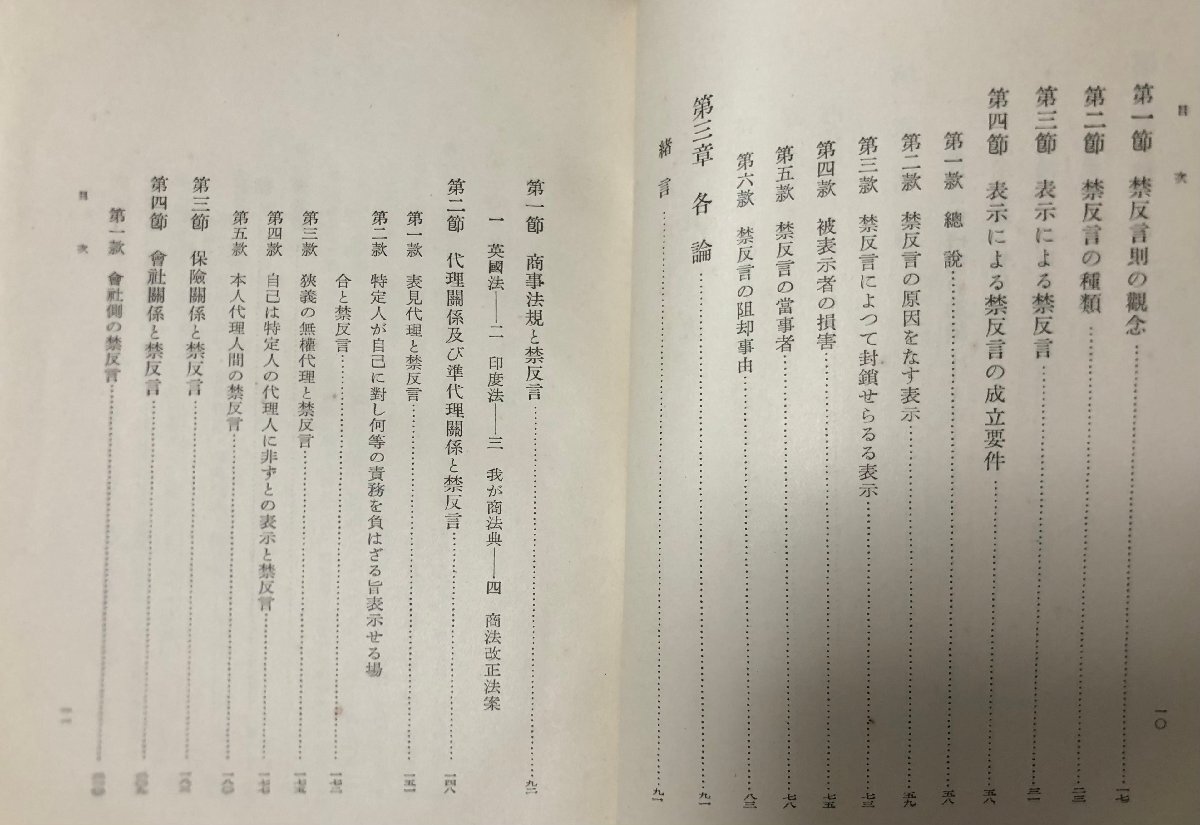 目次
一〇
第一節　禁反言則の觀念……一七
第二節　禁反言の種類……二三
第三節　表示による禁反言……三一
第四節　表示による禁反言の成立要件……五八
第一款　總說……五八
第二款　禁反言の原因をなす表示……五九
第三款　禁反言によつて封鎖せらるる表示……七三
第四款　被表示者の損害……七五
第五款　禁反言の當事者……七八
第六款　禁反言の阻却事由……八三
第三章　各論……九一
緖言……九一
第一節　商事法規と禁反言……九二
一　英國法――二　印度法――三　我が商法典――四　商法改正法案
第二節　代理關係及び準代理關係と禁反言……一四八
第一款　表見代理と禁反言……一五一
第二款　特定人が自己に對し何等の責務を負はざる旨表示せる場
合と禁反言……一七二
第三款　狹義の無權代理と禁反言……一七五
第四款　自己は特定人の代理人に非ずとの表示と禁反言……一七七
第五款　本人代理人間の禁反言……
第三節　保險關係と禁反言……
第四節　會社關係と禁反言……
第一款　會社側の禁反言……
目次
一一